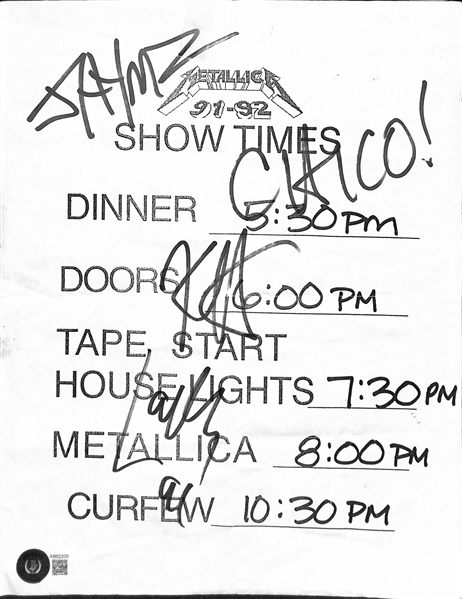 JAYMZ
METALLICA
91-92
SHOW TIMES
CHICO!
DINNER 5:30 PM
DOORS 6:00 PM
TAPE, START
HOUSE LIGHTS 7:30 PM
METALLICA 8:00 PM
CURFEW 10:30 PM